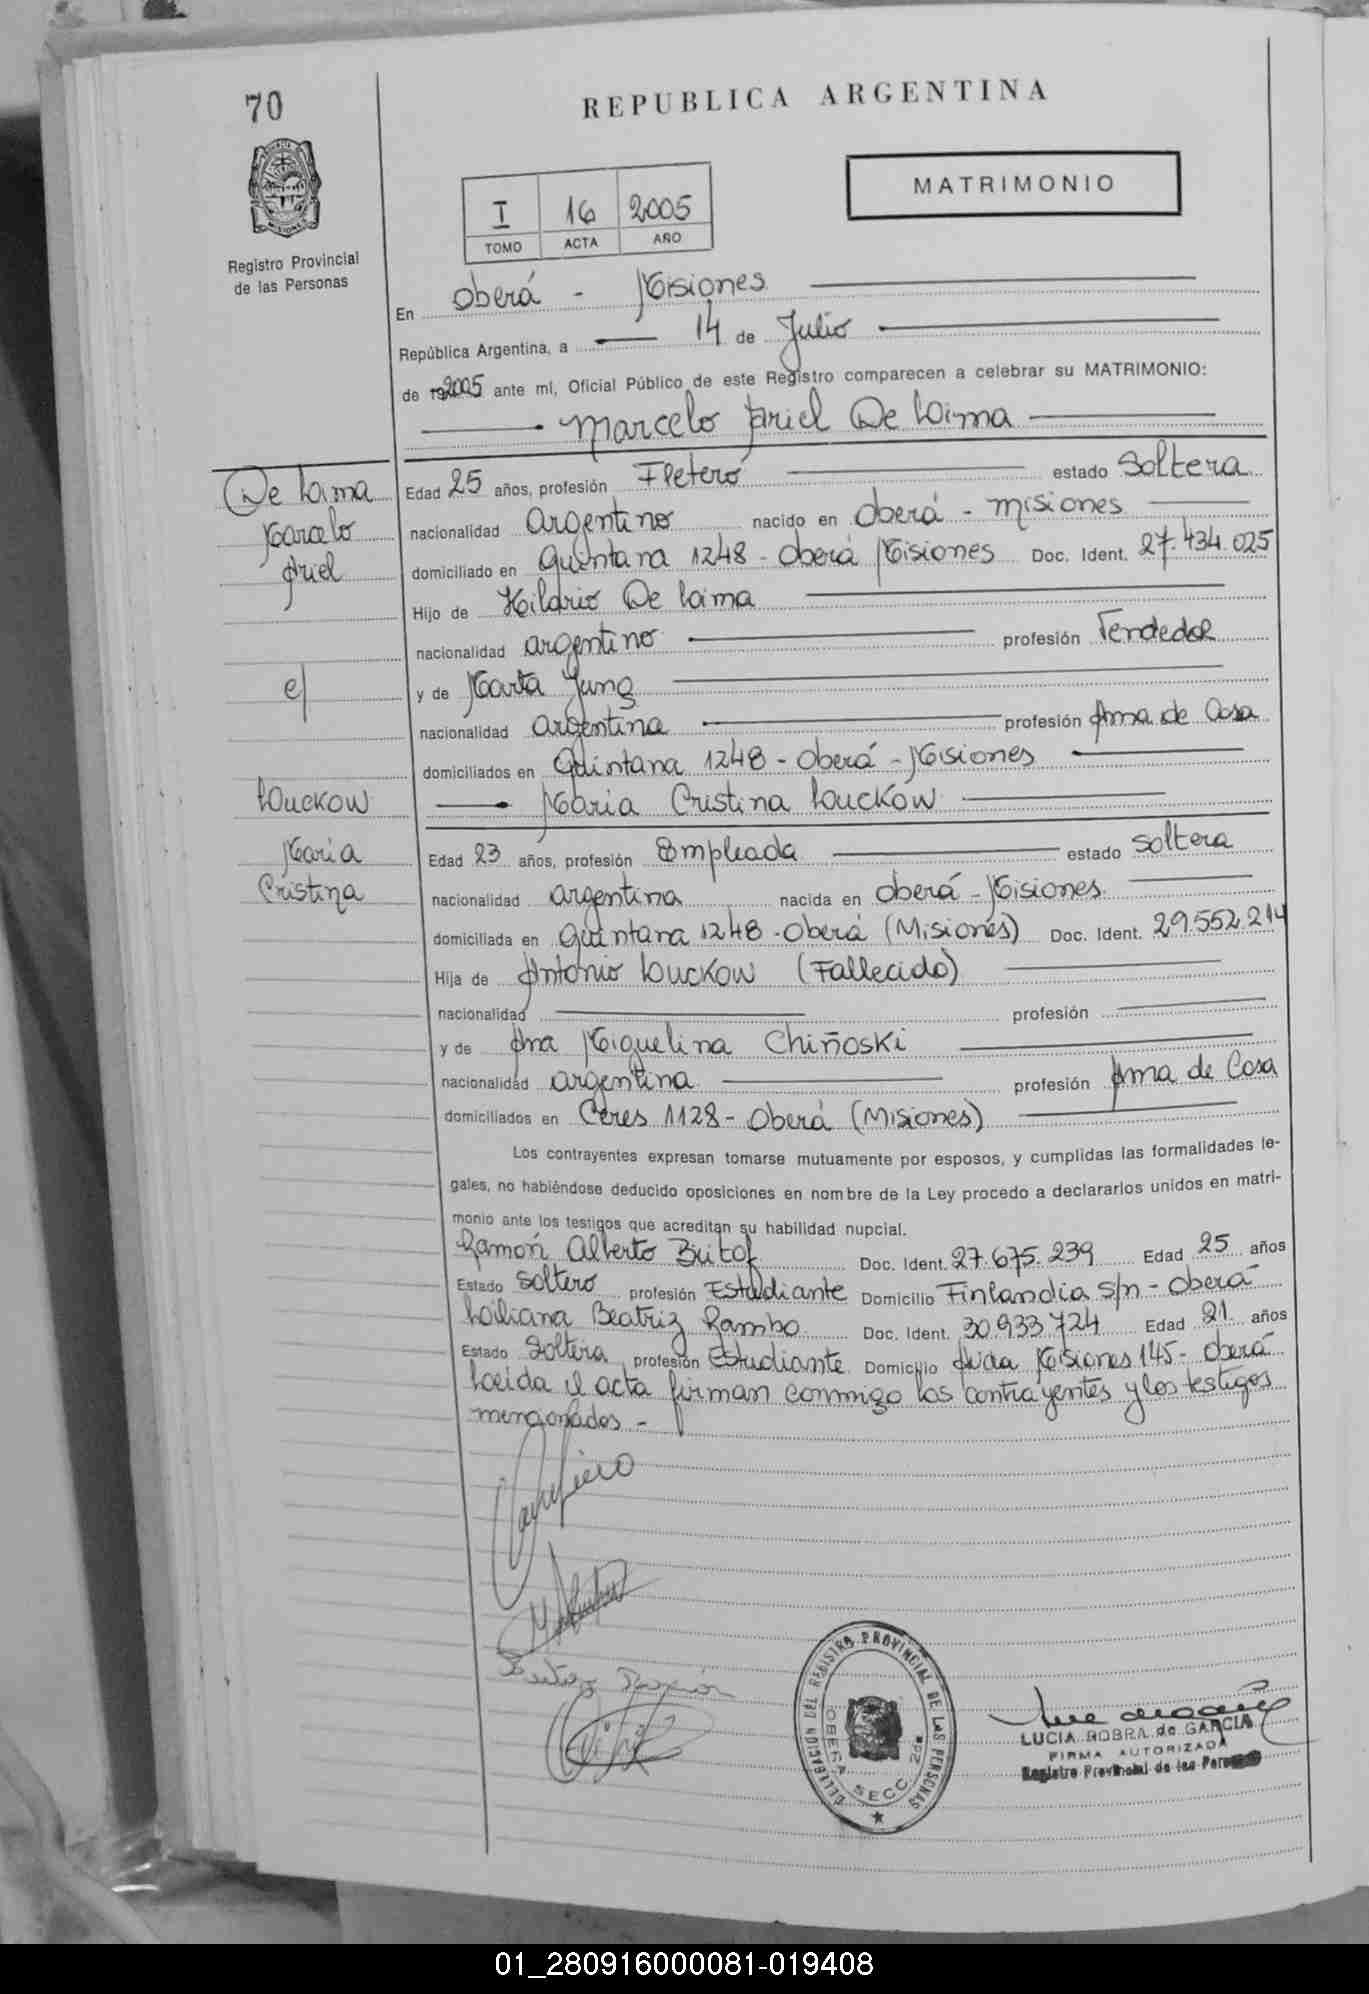 70
REPUBLICA ARGENTINA
MATRIMONIO
I 16 2005
TOMO ACTA AÑO
Registro Provincial
de las Personas
En Oberá - Misiones
República Argentina, a 14 de Julio
de 2005 ante mí, Oficial Público de este Registro comparecen a celebrar su MATRIMONIO:
Marcelo Ariel De Lima
De Lima
Marcelo
Ariel
c/
Luckow
Maria
Cristina
Edad 25 años, profesión Fletero estado Soltera
nacionalidad argentino nacido en Oberá - Misiones
domiciliado en Quintana 1248 - Oberá Misiones Doc. Ident. 27.434.025
Hijo de Hilario De Lima
nacionalidad argentino profesión Vendedor
y de Marta Jung
nacionalidad argentina profesión Ama de Casa
domiciliados en Quintana 1248 - Oberá - Misiones
Maria Cristina Luckow
Edad 23 años, profesión Empleada estado Soltera
nacionalidad argentina nacida en Oberá - Misiones
domiciliada en Quintana 1248 - Oberá (Misiones) Doc. Ident. 29.552.214
Hija de Antonio Luckow (Fallecido)
nacionalidad profesión
y de Ana Miguelina Chiñoski
nacionalidad argentina profesión Ama de Casa
domiciliados en Ceres 1128 - Oberá (Misiones)
Los contrayentes expresan tomarse mutuamente por esposos, y cumplidas las formalidades le-
gales, no habiéndose deducido oposiciones en nombre de la Ley procedo a declararlos unidos en matri-
monio ante los testigos que acreditan su habilidad nupcial.
Ramón Alberto Doc. Ident. 27.675.239 Edad 25 años
Estado Soltero profesión Estudiante Domicilio Finlandia s/n - Oberá
Liliana Beatriz Rambo Doc. Ident. 30.933.724 Edad 21 años
Estado Soltera profesión Estudiante Domicilio Avda Misiones 145 - Oberá
Leida el acta firman conmigo los contrayentes y los testigos
mencionados -
DELEGACION DEL REGISTRO PROVINCIAL DE LAS PERSONAS
OBERA SECC. 2da
LUCIA ROBRA de GARCIA
FIRMA AUTORIZADA
Registro Provincial de las Personas
01_280916000081-019408